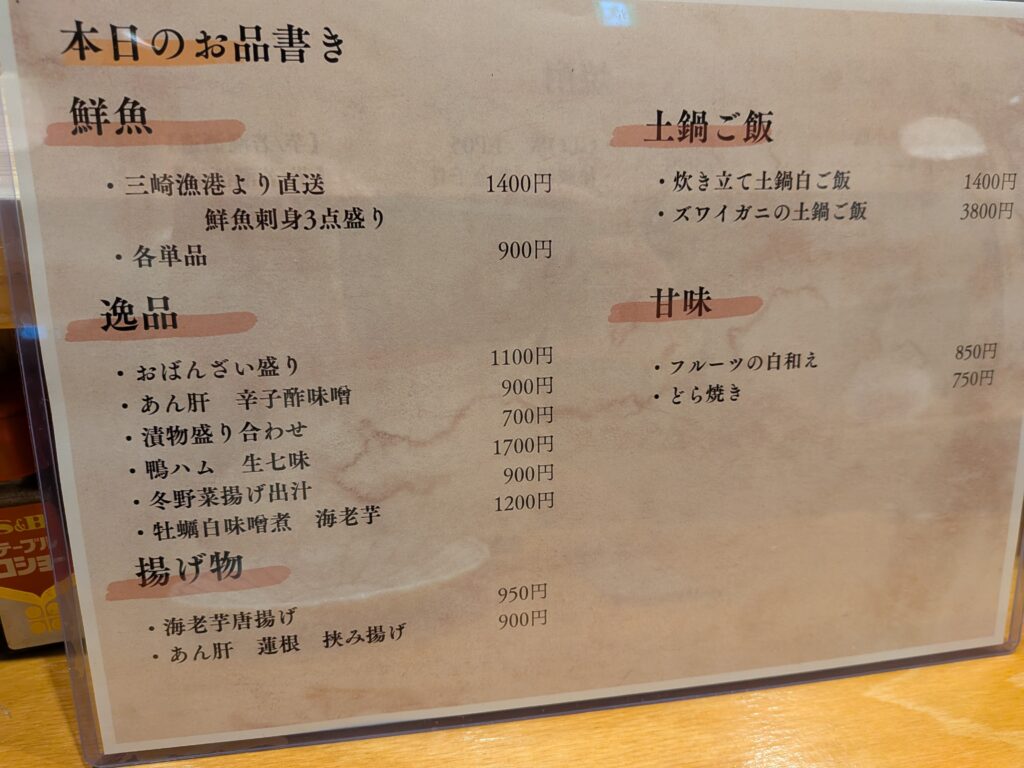 本日のお品書き
鮮魚
・三崎漁港より直送 1400円
鮮魚刺身3点盛り
・各単品 900円
逸品
・おばんざい盛り 1100円
・あん肝 辛子酢味噌 900円
・漬物盛り合わせ 700円
・鴨ハム 生七味 1700円
・冬野菜揚げ出汁 900円
・牡蠣白味噌煮 海老芋 1200円
揚げ物
・海老芋唐揚げ 950円
・あん肝 蓮根 挟み揚げ 900円
土鍋ご飯
・炊き立て土鍋白ご飯 1400円
・ズワイガニの土鍋ご飯 3800円
甘味
・フルーツの白和え 850円
・どら焼き 750円
S&B
テーブル
コショー